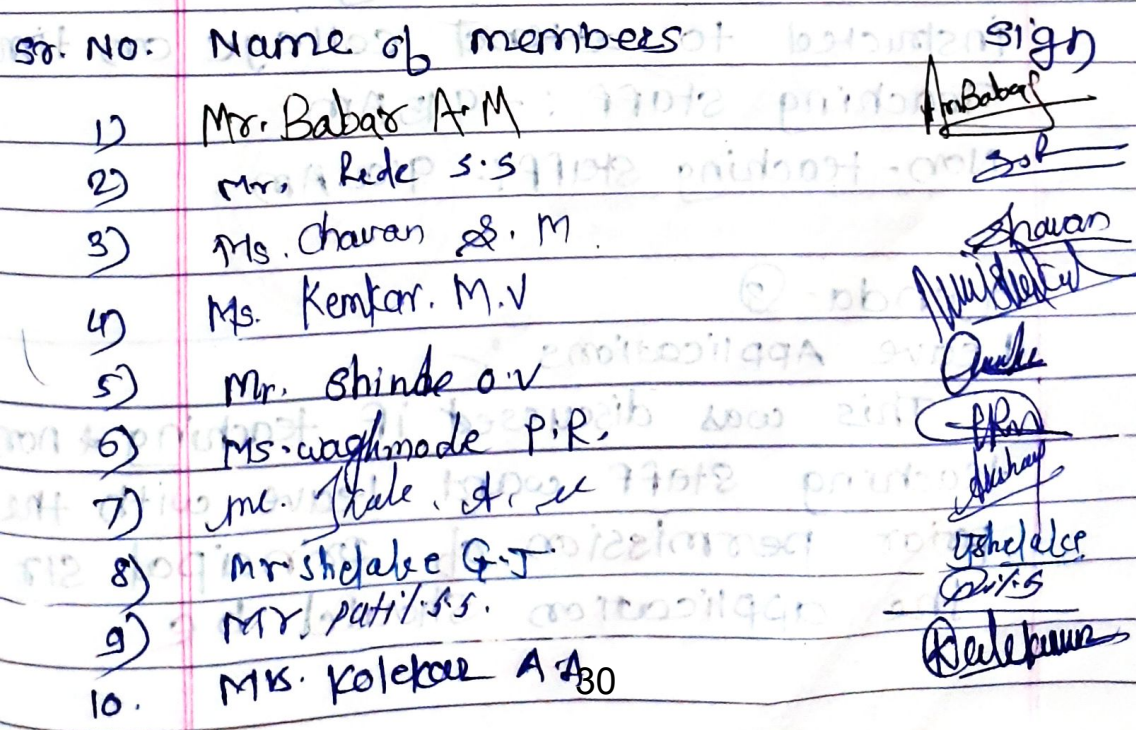 Sr. No. Name of members Sign
1) Mr. Babar A.M AmBabar
2) Mr. Rede S.S
3) Ms. Chavan S. M. Chavan
4) Ms. Kemkar. M.V
5) Mr. Shinde O.V
6) Ms. Waghmode P.R. PRW
7) A. Akshay
8) Mr Shelake G.J. Gshelake
9) Mr, Patil.S.S.
10. Mrs. Kolekar A A
30